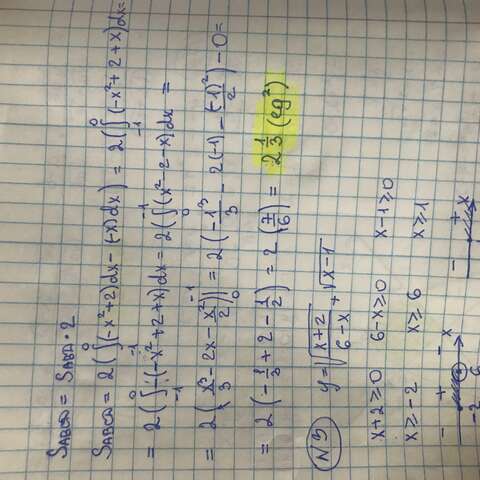 S_ABCD = S_ABA · 2
S_ABCD = 2(∫₋₁⁰(-x²+2)dx - (-x)dx) = 2(∫₋₁⁰(-x²+2+x)dx =
= 2(∫₋₁⁰(-x²+2+x)dx = 2(∫₀⁻¹(x²-2-x)dx =
= 2(x³/3 - 2x - x²/2)|₀⁻¹ = 2(-1³/3 - 2(-1) - (-1)²/2) - 0 =
= 2(-1/3 + 2 - 1/2) = 2(7/6) = 2 1/3 (eg²)
N3 y = √((x+2)/(6-x)) + √(x-1)
x+2≥0 6-x≥0 x-1≥0
x≥-2 x≥6 x≥1
- + - x - + x
-2 6